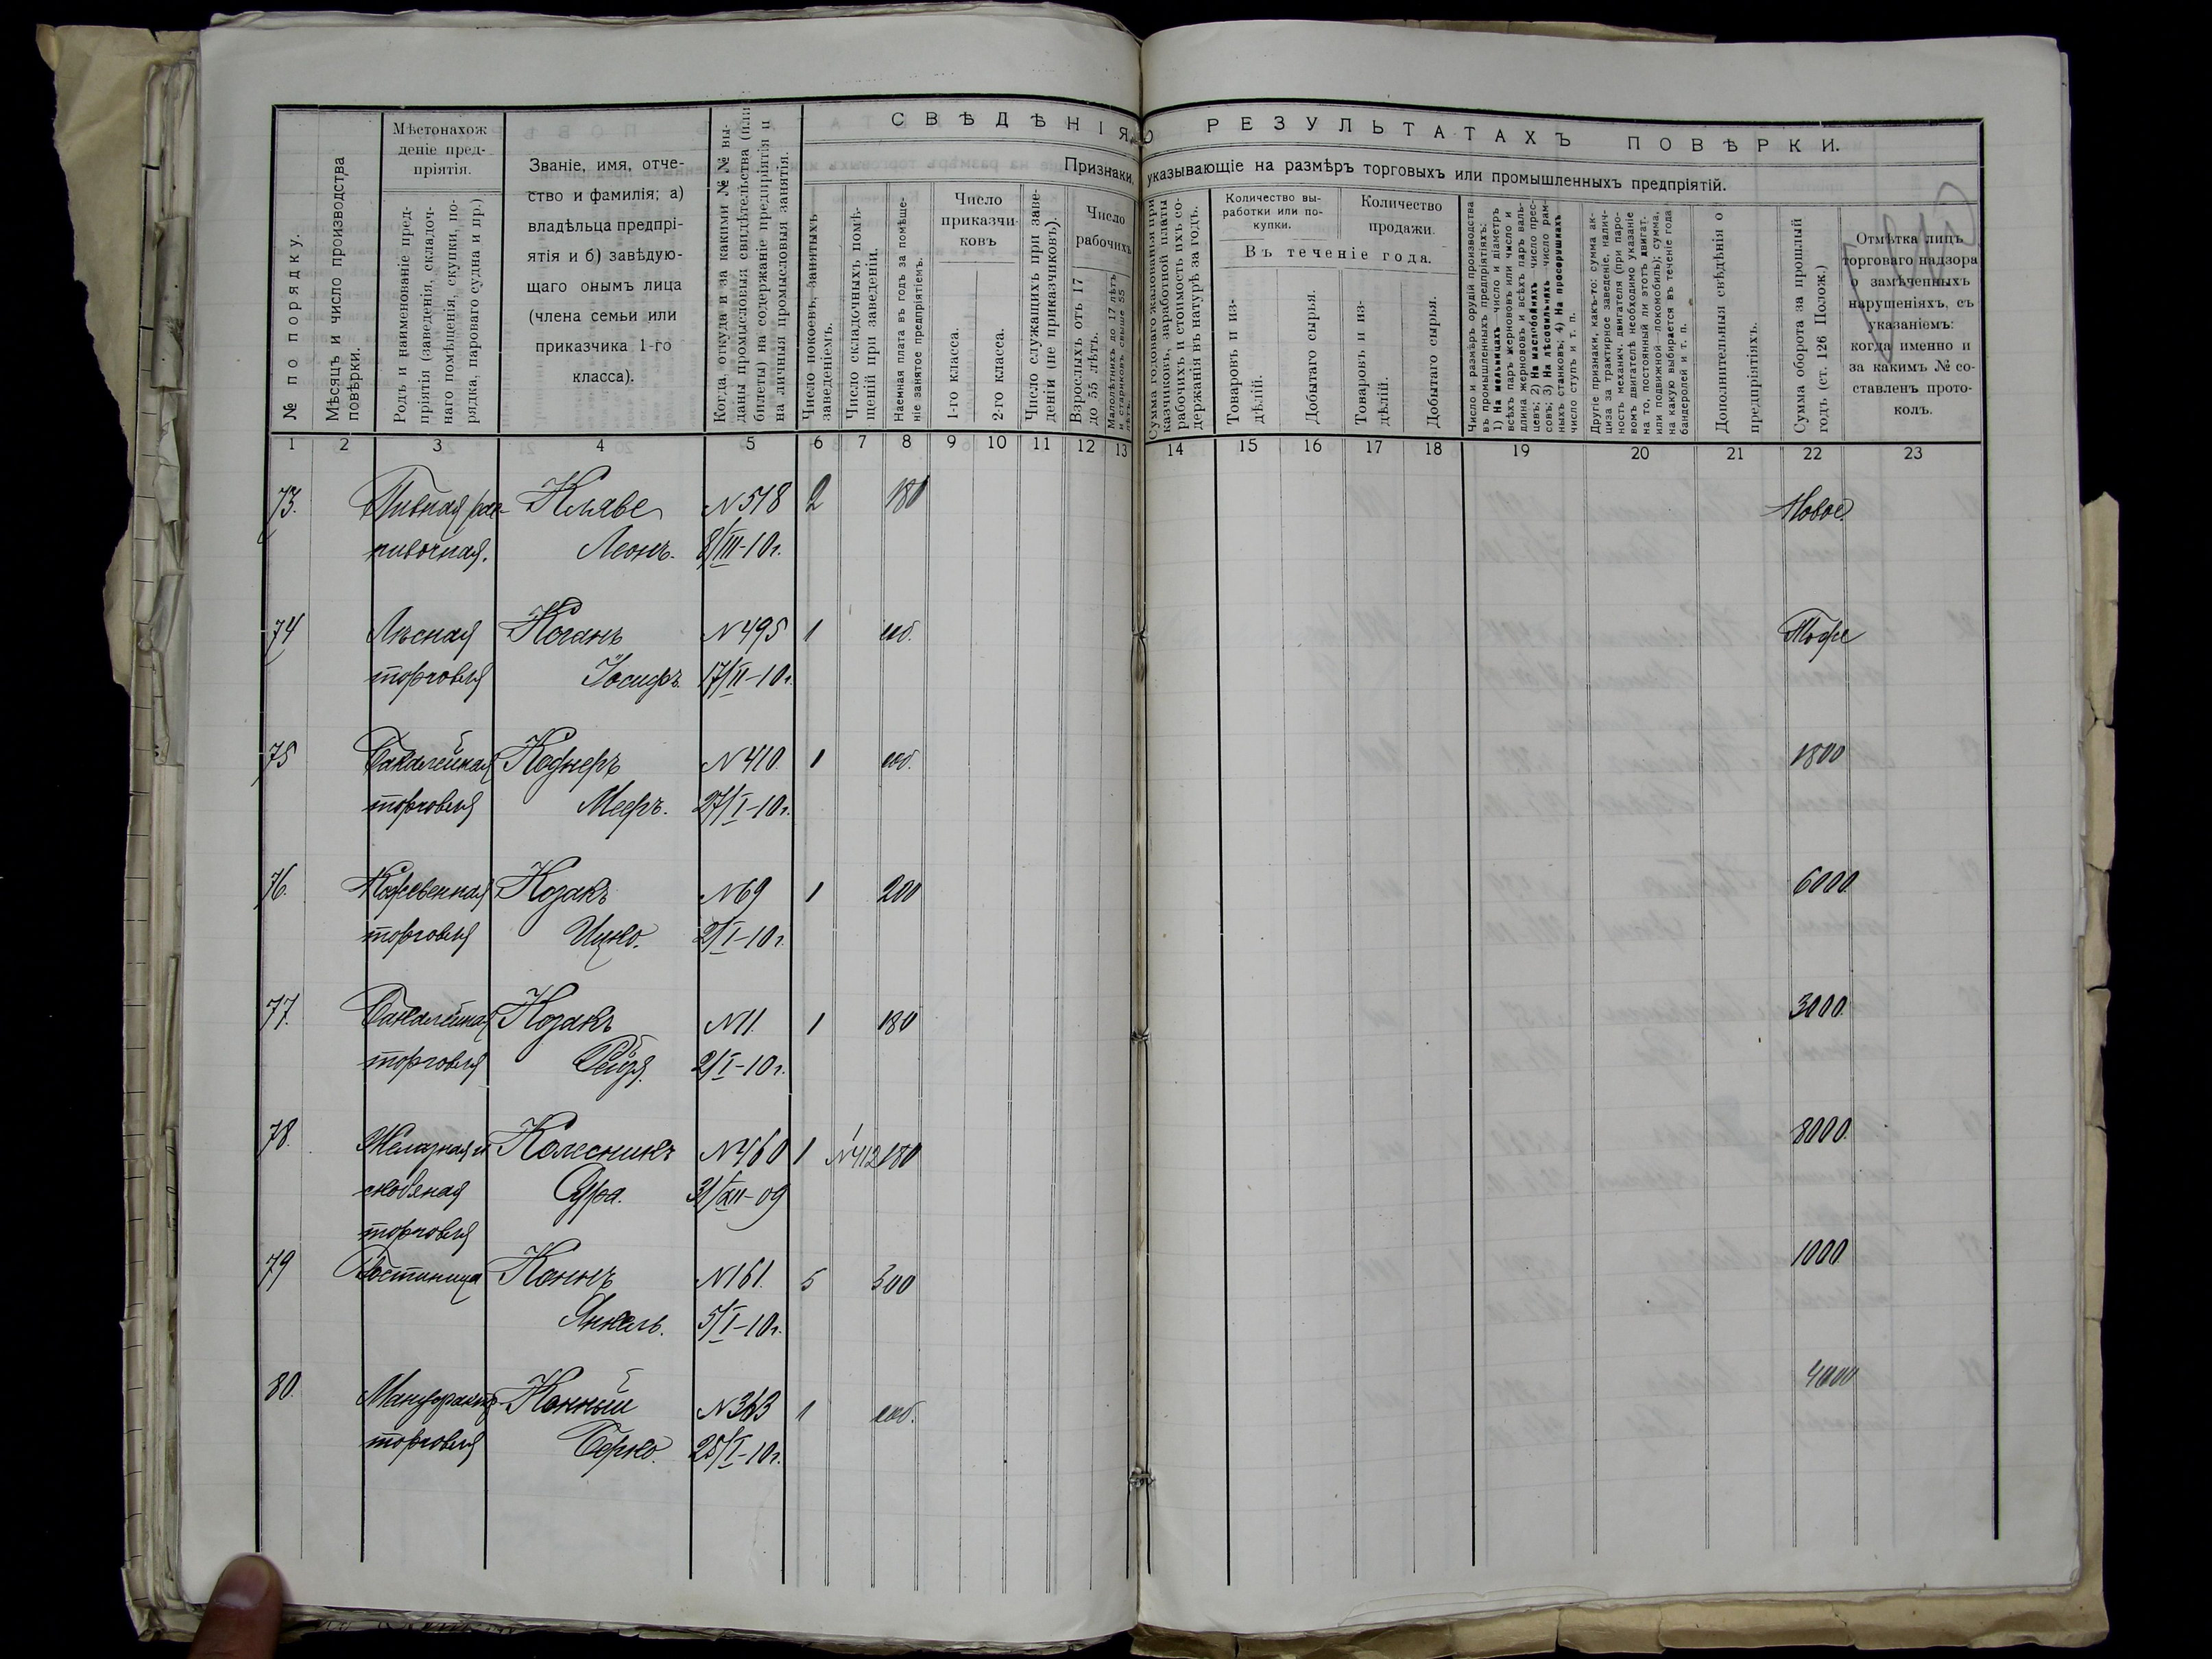 СВѢДѢНІЯ О РЕЗУЛЬТАТАХЪ ПОВѢРКИ.
Признаки, указывающіе на размѣръ торговыхъ или промышленныхъ предпріятій.
№ по порядку.
Мѣсяцъ и число производства
повѣрки.
Мѣстонахож
деніе пред-
пріятія.
Родъ и наименованіе пред-
пріятія (заведенія, складоч-
наго помѣщенія, скупки, по-
рядка, парового судна и пр.)
Званіе, имя, отче-
ство и фамилія; а)
владѣльца предпрі-
ятія и б) завѣдую-
щаго онымъ лица
(члена семьи или
приказчика 1-го
класса).
Когда, откуда и за какими №№ вы-
даны промысловыя свидѣтельства (или
билеты) на содержаніе предпріятія и
на личныя промысловыя занятія.
Число покоевъ, занятыхъ
заведеніемъ.
Число складочныхъ помѣ-
щеній при заведеніи.
Наемная плата въ годъ за помѣще-
ніе занятое предпріятіемъ.
Число
приказчи-
ковъ
1-го класса.
2-го класса.
Число служащихъ при заве-
деніи (не приказчиковъ).
Число
рабочихъ
Взрослыхъ отъ 17
до 55 лѣтъ.
Малолѣтнихъ до 17 лѣтъ
и стариковъ свыше 55
лѣтъ.
Сумма годоваго жалованья при
казчиковъ, заработной платы
рабочихъ и стоимость ихъ со-
держанія въ натурѣ за годъ.
Количество вы-
работки или по-
купки.
Количество
продажи.
Въ теченіе года.
Товаровъ и из-
дѣлій.
Добытаго сырья.
Товаровъ и из-
дѣлій.
Добытаго сырья.
Число и размѣръ орудій производства
въ промышленныхъ предпріятіяхъ:
1) На мельницахъ число и діаметръ
всѣхъ паръ жернововъ или число и
длина жернововъ и всѣхъ паръ валь-
цевъ; 2) На маслобойняхъ число прес-
совъ; 3) На лѣсопильняхъ число рам-
ныхъ станковъ; 4) На просорушкахъ
число ступъ и т. п.
Другіе признаки, какъ-то: сумма ак-
циза за трактирное заведеніе, налич-
ность механич. двигателя (при паро-
вомъ двигателѣ необходимо указаніе
на то, постоянный ли этотъ двигат.
или подвижной—локомобиль); сумма,
на какую выбирается въ теченіе года
бандеролей и т. п.
Дополнительныя свѣдѣнія о
предпріятіяхъ.
Сумма оборота за прошлый
годъ (ст. 126 Полож.)
Отмѣтка лицъ
торговаго надзора
о замѣченныхъ
нарушеніяхъ, съ
указаніемъ:
когда именно и
за какимъ № со-
ставленъ прото-
колъ.
1 2 3 4 5 6 7 8 9 10 11 12 13 14 15 16 17 18 19 20 21 22 23
73. Пивная рас- Кляве N 518 2 180 Новое.
пивочная. Леонъ. 8/III-10 г.
74 Лѣсная Коганъ N 495 1 соб. Тоже
торговля Іосифъ. 17/II-10 г.
75 Бакалейная Кофнеръ N 410 1 соб. 1800
торговля Мееръ. 27/I-10 г.
76. Кожевенная Козакъ N 69 1 200 6000
торговля Ицко. 2/I-10 г.
77. Бакалейная Козакъ N 11 1 180 3000
торговля Рейзя. 2/I-10 г.
78. Желѣзная и Колесникъ N 460 1 1 N 412 180 8000
скобяная Сура. 31/XII-09
торговля
79 Гостиница Конъ N 161. 5 300 1000
Янкель. 5/I-10 г.
80. Мануфакт. Конный N 363 1 соб. 4000
торговля Берко. 25/I-10 г.